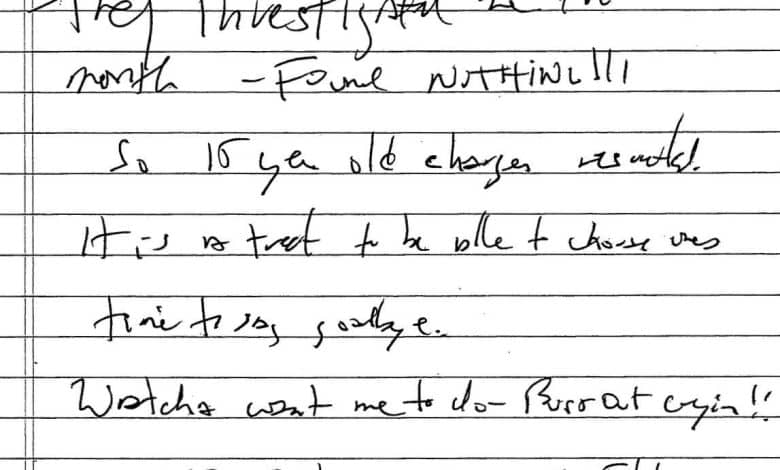 They investigated me for
month - Found NOTHING!!!
So 15 year old charges resulted.
It is a treat to be able to choose ones
time to say goodbye.
Watcha want me to do - Burst out cryin!!